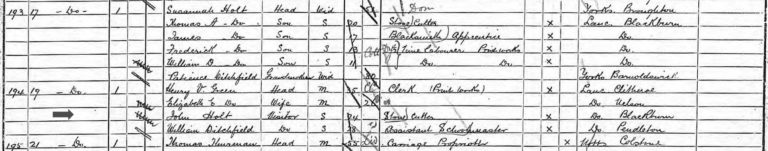 193 17 - Do - 1 Susannah Holt Head Wid Dom Yorks. Broughton
Thomas A - Do Son S 20 Stone Cutter x Lanc. Blackburn
James - Do Son S 17 Blacksmith Apprentice x Do.
Frederick - Do Son S 13 Time Labourer Printworks x Do.
William D - Do Son S 11 Do. Do. x Do.
Patience Ditchfield Grandmother Wid 80 Yorks Barnoldswick
194 19 - Do. 1 Henry V. Green Head M 25 Clerk (Print Works) x Lanc Clitheroe
Elizabeth E Do Wife M 26 Do. Nelson
John Holt Visitor S 24 Stone Cutter x Do. Blackburn
William Ditchfield Do S 28 Assistant Schoolmaster x Do Pendleton
195 21 - Do. 1 Thomas Head M 55 Carriage Proprietor x Notts